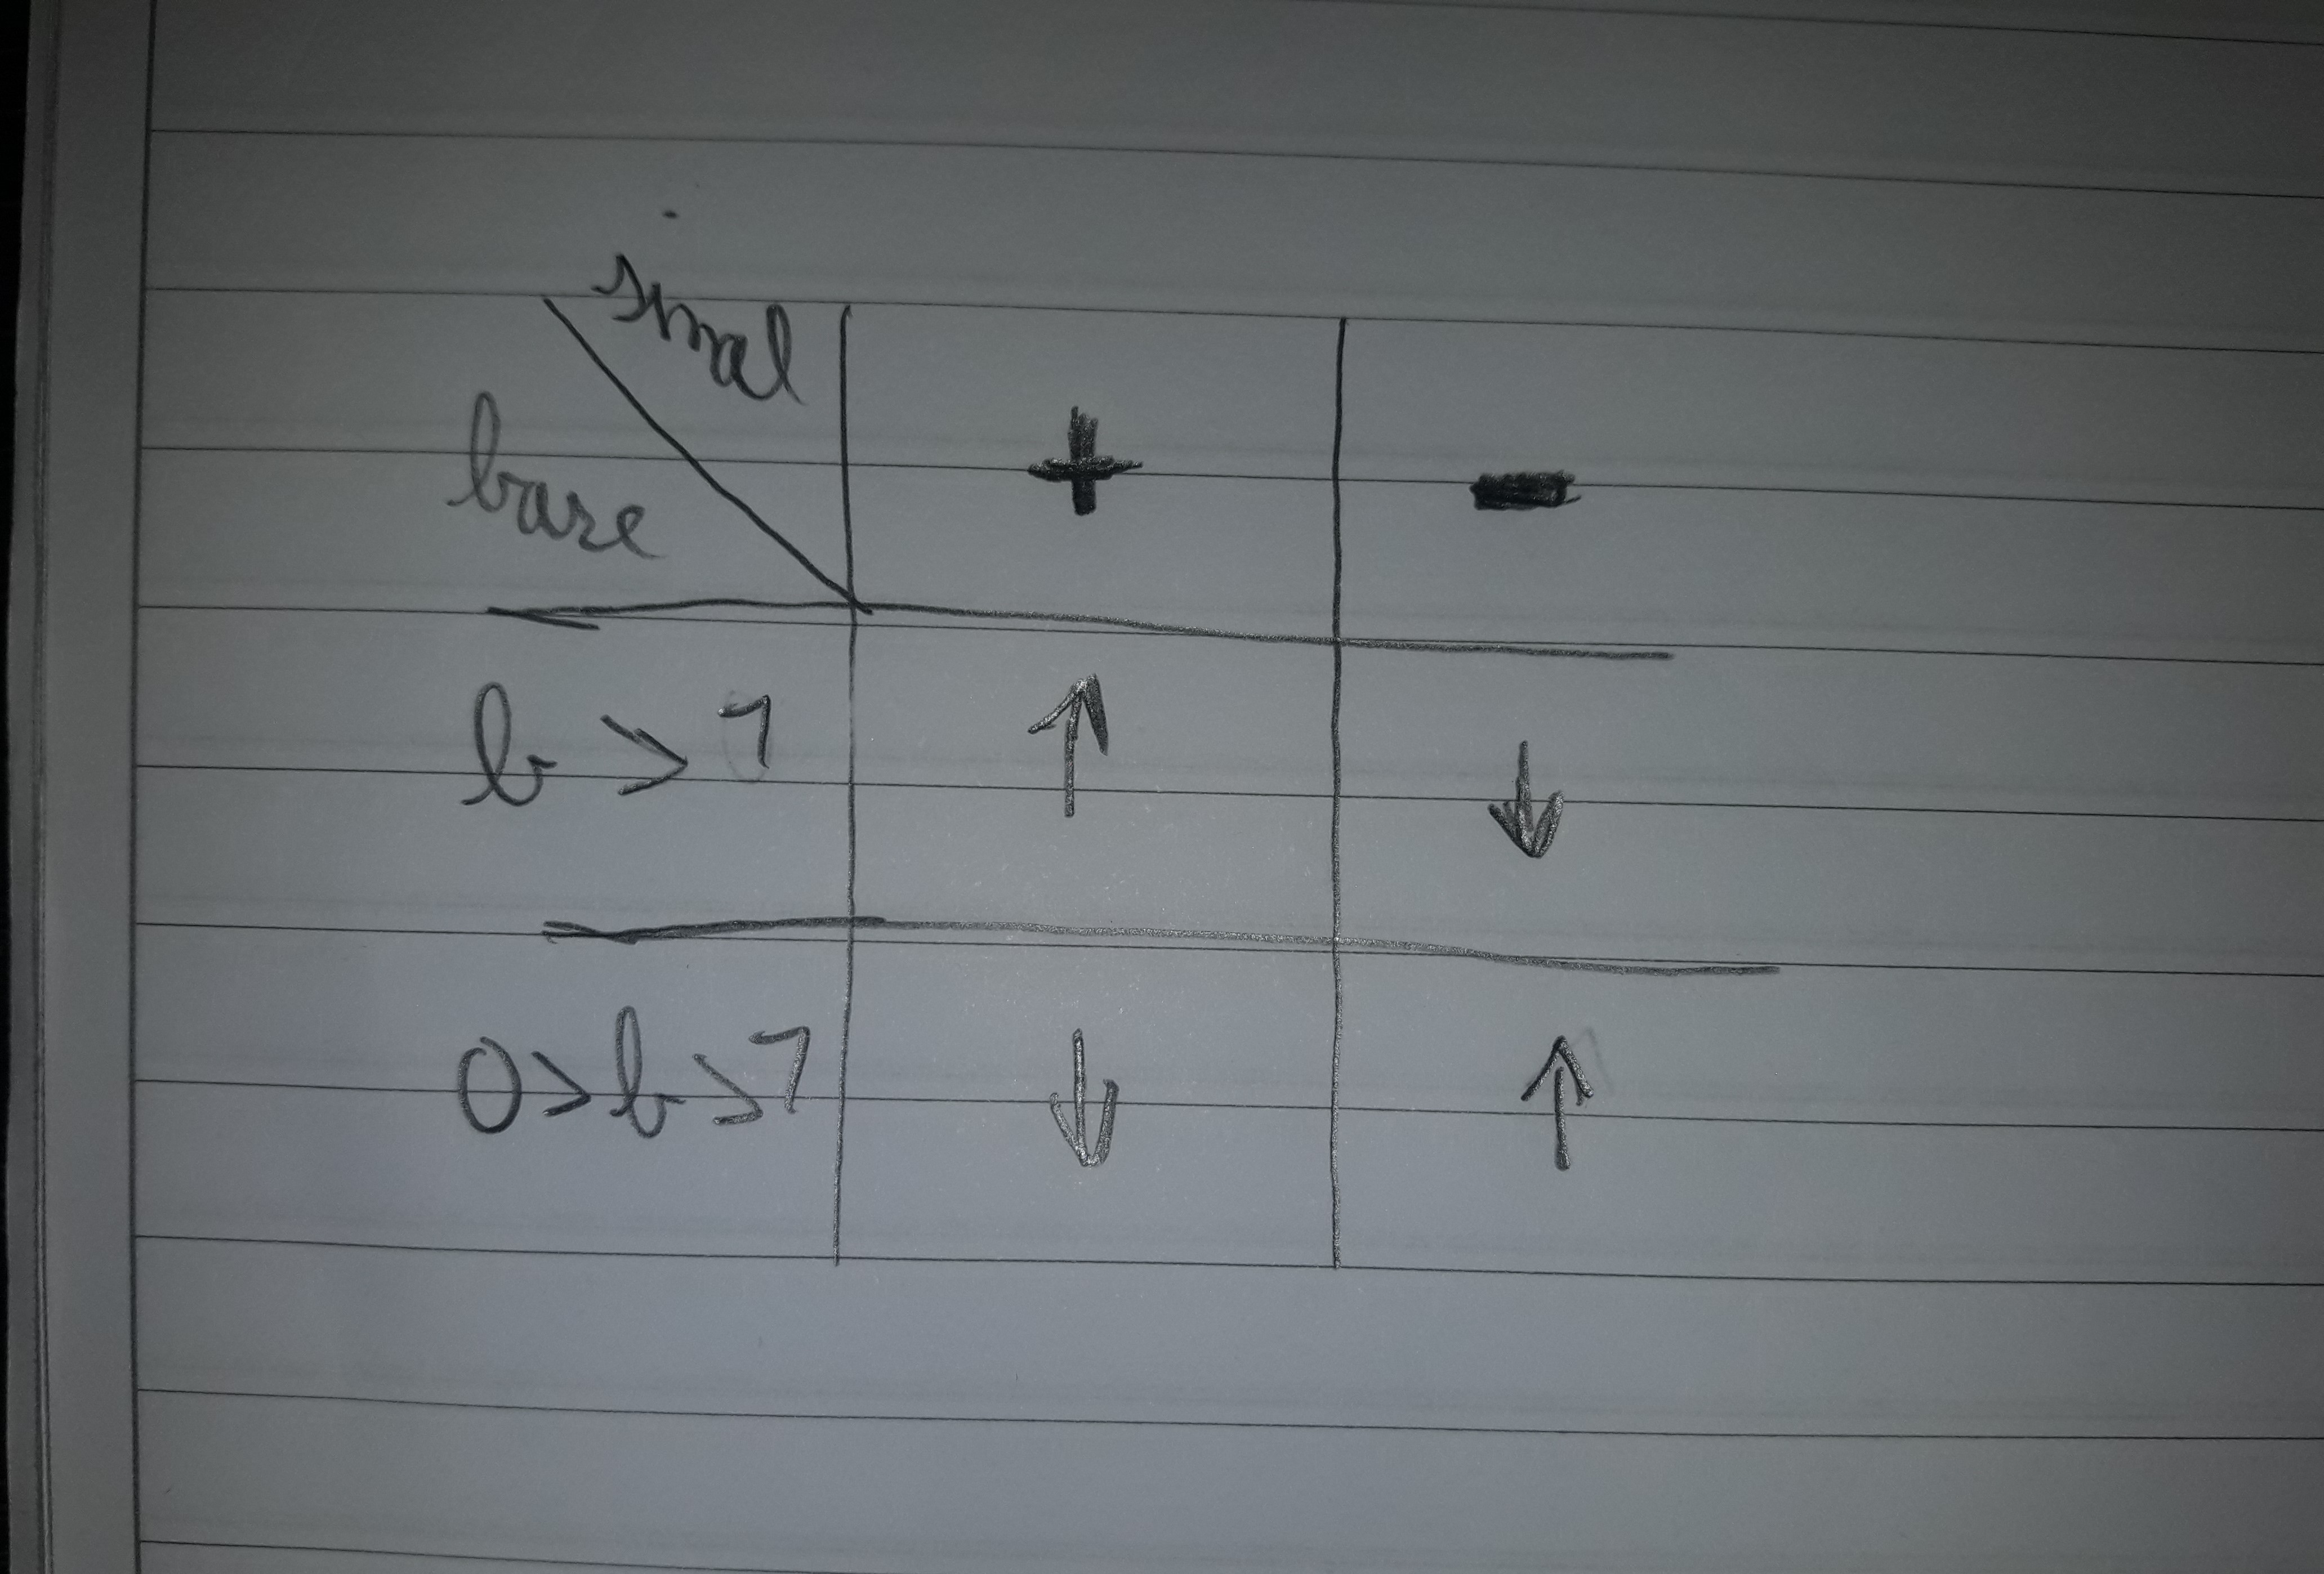 sinal
base + -
b > 1 ↑ ↓
0 > b > 1 ↓ ↑